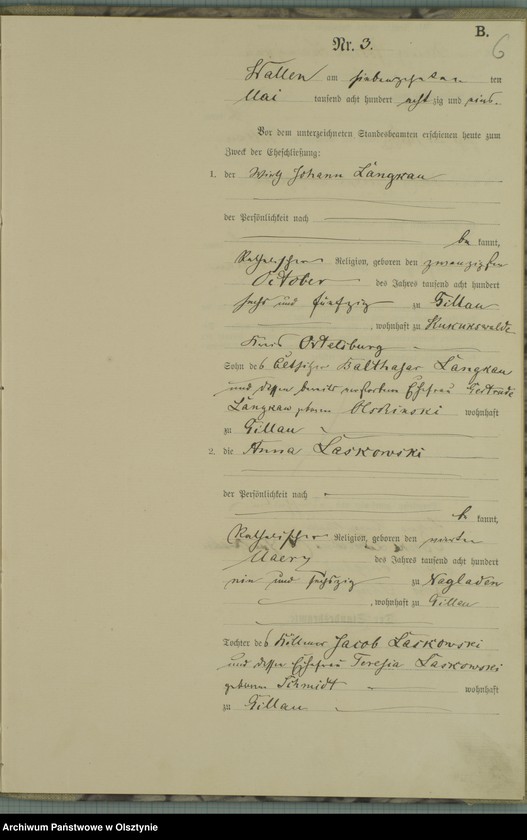 B.
6
Nr. 3.
Wallen am siebenzehnten ten
Mai tausend acht hundert achtzig und eins.
Vor dem unterzeichneten Standesbeamten erschienen heute zum
Zweck der Eheschließung:
1. der Wirth Johann Längkau
der Persönlichkeit nach
bekannt,
katholischer Religion, geboren den zwanzigsten
October des Jahres tausend acht hundert
sechs und fünfzig zu Gillau
, wohnhaft zu Kukukswalde
Kreis Ortelsburg
Sohn des Altsitzer Balthasar Längkau
und dessen bereits verstorbenen Ehefrau Gertrude
Längkau geborne wohnhaft
zu Gillau
2. die Anna Laskowski
der Persönlichkeit nach
bekannt,
katholischer Religion, geboren den vierten
Maerz des Jahres tausend acht hundert
ein und sechszig zu Nagladen
, wohnhaft zu Gillau
Tochter des Köllmer Jacob Laskowski
und dessen Ehefrau Teresia Laskowski
geborne Schmidt wohnhaft
zu Gillau
Archiwum Państwowe w Olsztynie